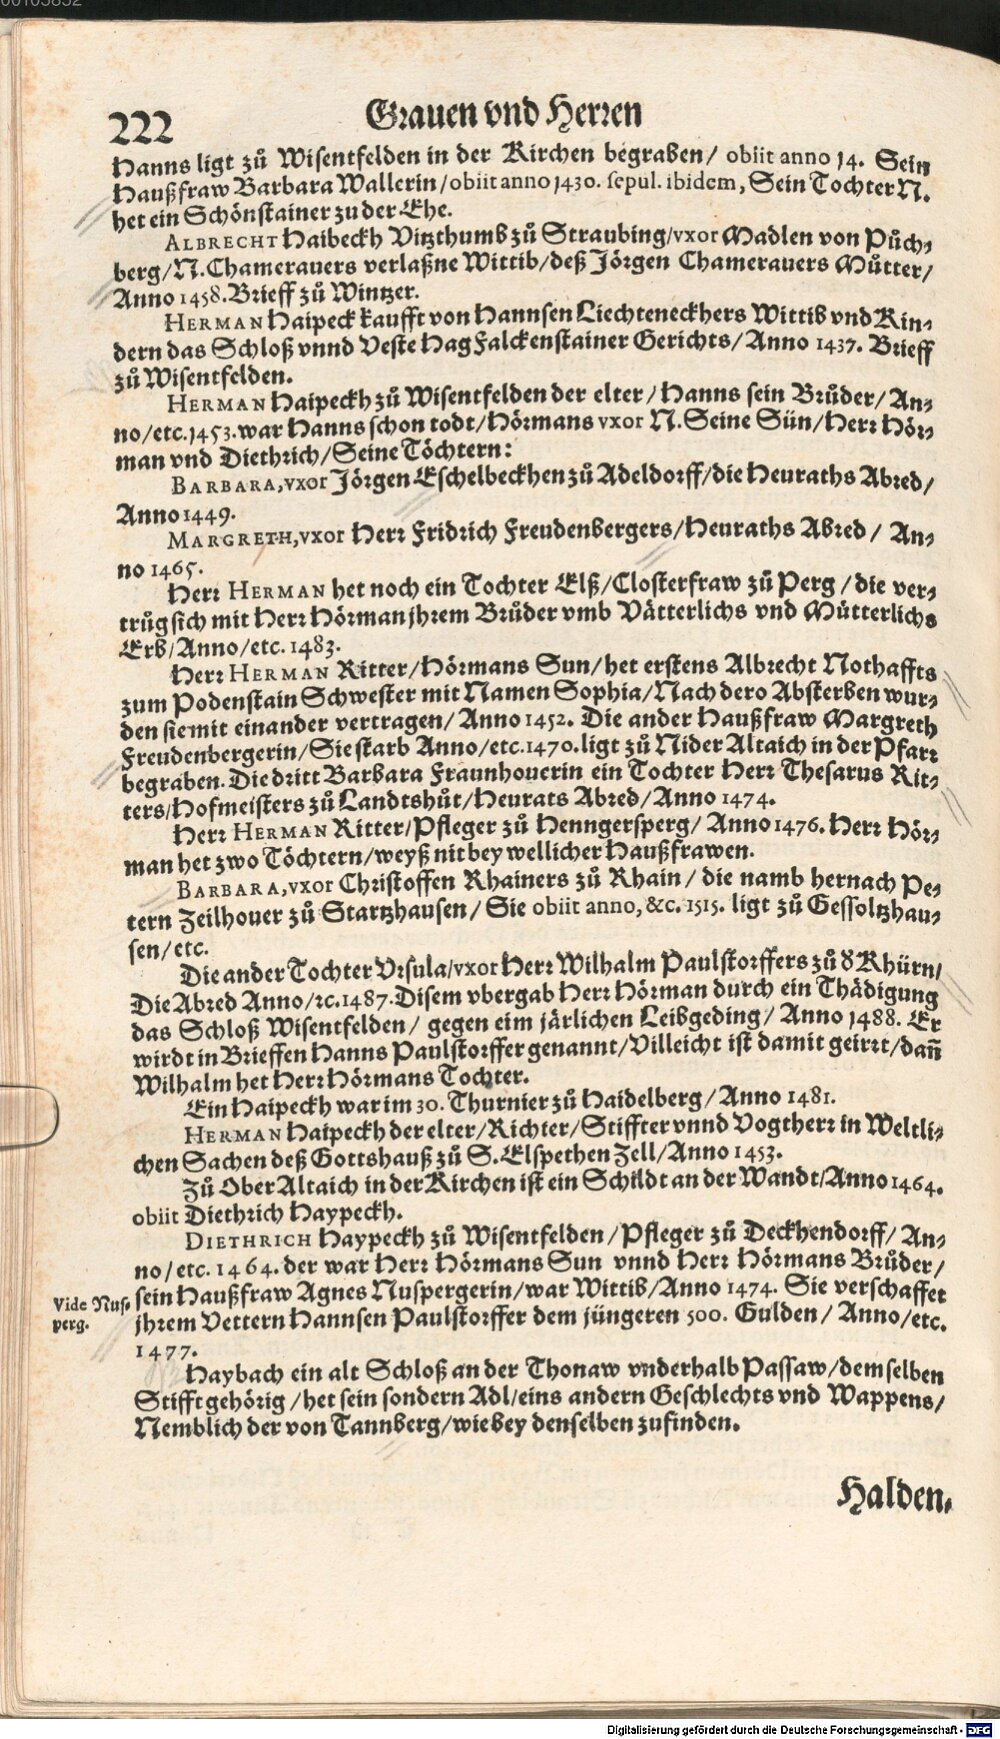 222
Grauen vnd Herren
Hanns ligt zů Wisentfelden in der Kirchen begraben/ obiit anno 14. Sein
Haußfraw Barbara Wallerin/obiit anno 1430. sepul. ibidem, Sein Tochter N.
het ein Schönstainer zu der Ehe.
ALBRECHT Haibeckh Vitzthumb zů Straubing/vxor Madlen von Půch-
berg/N. Chamerauers verlaßne Wittib/deß Jörgen Chamerauers Můtter/
Anno 1458. Brieff zů Wintzer.
HERMAN Haipeck kaufft von Hannsen Liechteneckhers Wittib vnd Kin-
dern das Schloß vnnd Veste Hag Falckenstainer Gerichts/Anno 1437. Brieff
zů Wisentfelden.
HERMAN Haipeckh zů Wisentfelden der elter/Hanns sein Brůder/An-
no/etc.1453. war Hanns schon todt/Hörmans vxor N. Seine Sün/Herr Hör-
man vnd Diethrich/Seine Töchtern:
BARBARA, vxor Jörgen Eschelbeckhen zů Adeldorff/die Heuraths Abred/
Anno 1449.
MARGRETH, vxor Herr Fridrich Freudenbergers/Heuraths Abred/ An-
no 1465.
Herr HERMAN het noch ein Tochter Elß/Closterfraw zů Perg/die ver-
trůg sich mit Herr Hörman jhrem Brůder vmb Vätterlichs vnd Můtterlichs
Erb/Anno/etc. 1483.
Herr HERMAN Ritter/Hörmans Sun/het erstens Albrecht Nothaffts
zum Podenstain Schwester mit Namen Sophia/Nach dero Absterben wur-
den sie mit einander vertragen/Anno 1452. Die ander Haußfraw Margreth
Freudenbergerin/Sie starb Anno/etc.1470. ligt zů Nider Altaich in der Pfarr
begraben. Die dritt Barbara Fraunhouerin ein Tochter Herr Thesarus Rit-
ters/Hofmeisters zů Landtshůt/Heurats Abred/Anno 1474.
Herr HERMAN Ritter/Pfleger zů Henngersperg/ Anno 1476. Herr Hör-
man het zwo Töchtern/weyß nit bey wellicher Haußfrawen.
BARBARA, vxor Christoffen Rhainers zů Rhain/ die namb hernach Pe-
tern Zeilhouer zů Startzhausen/ Sie obiit anno, &c. 1515. ligt zů Gessoltzhau-
sen/etc.
Die ander Tochter Vrsula/vxor Herr Wilhalm Paulstorffers zů d Khürn/
Die Abred Anno/ꝛc.1487. Disem vbergab Herr Hörman durch ein Thädigung
das Schloß Wisentfelden/ gegen eim järlichen Leibgeding/ Anno 1488. Er
wirdt in Brieffen Hanns Paulstorffer genannt/Villeicht ist damit geirrt/dañ
Wilhalm het Herr Hörmans Tochter.
Ein Haipeckh war im 30. Thurnier zů Haidelberg/Anno 1481.
HERMAN Haipeckh der elter/Richter/Stiffter vnnd Vogtherr in Weltli-
chen Sachen deß Gottshauß zů S. Elspethen Zell/Anno 1453.
Zů Ober Altaich in der Kirchen ist ein Schildt an der Wandt/Anno 1464.
obiit Diethrich Haypeckh.
DIETHRICH Haypeckh zů Wisentfelden/Pfleger zů Deckhendorff/An-
no/etc. 1464. der war Herr Hörmans Sun vnnd Herr Hörmans Brůder/
sein Haußfraw Agnes Nuspergerin/war Wittib/Anno 1474. Sie verschaffet
Vide Nus-
perg.
jhrem Vettern Hannsen Paulstorffer dem jüngeren 500. Gulden/ Anno/etc.
1477.
Haybach ein alt Schloß an der Thonaw vnderhalb Passaw/demselben
Stifft gehörig/het sein sondern Adl/eins andern Geschlechts vnd Wappens/
Nemblich der von Tannberg/wie bey denselben zufinden.
Halden-
Digitalisierung gefördert durch die Deutsche Forschungsgemeinschaft - DFG